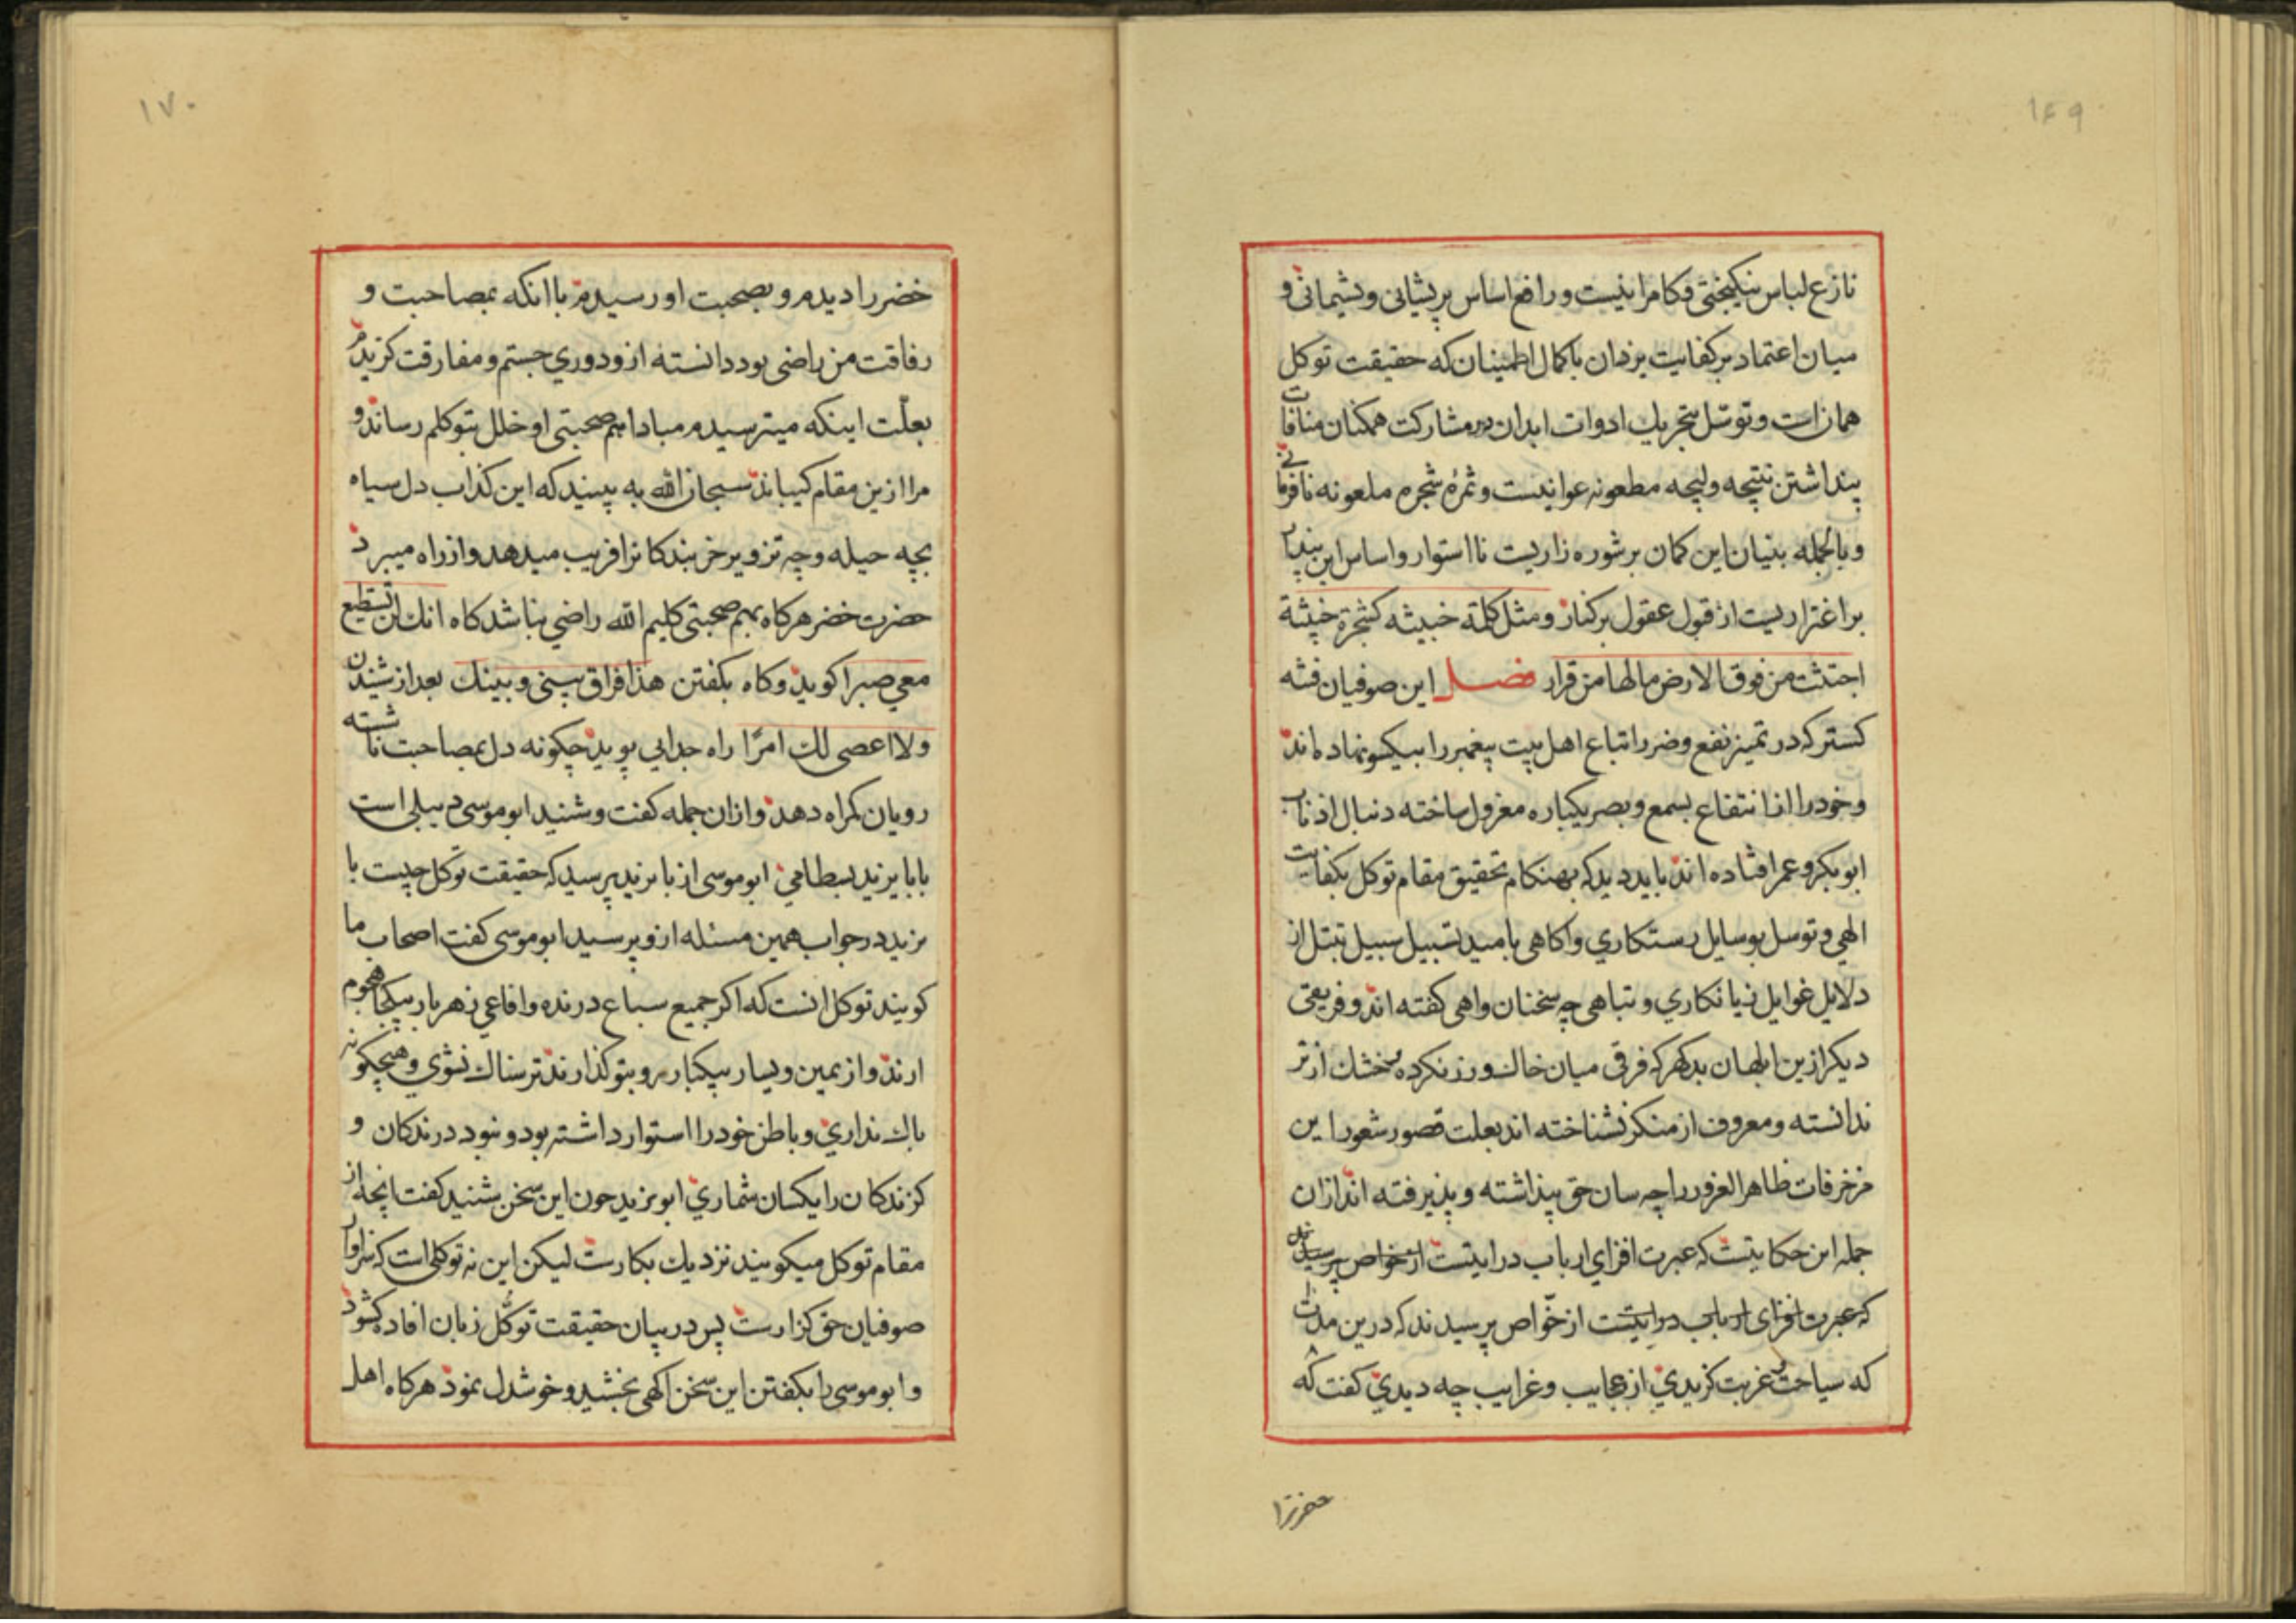 ۱۶۹
نازع لباس نیکبختی و کامرانیست و رافع اساس پریشانی و پشیمانی و
میان اعتماد بر کفایت یزدان با کمال اطمینان که حقیقت توکل
همان است و توسّل بتحریك ادوات ابدان در مشارکت همکنان منافات
پنداشتن نتیجه ولیجه مطعونه عوانیست و ثمرهٔ شجره ملعونه نافرمانی
و بالجمله بنیان این کمان بر شوره زاریست نااستوار و اساس این پندار
بر اغتراریست از قبول عقول برکنار و مثل کلمة خبیثه کشجرة خبیثة
اجتثت من فوق الارض مالها من قرار فصل این صوفیان فتنه
کستر که در تمیز نفع و ضرر اتباع اهل بیت پیغمبر را بیکسو نهاده اند
و خود را از انتفاع بسمع و بصر یکباره معزول ساخته دنبال اذناب
ابوبکر و عمر افتاده اند باید دید که بهنکام تحقیق مقام توکل بکفایت
الهی و توسل بوسایل رستکاری و اکاهی بامید تسبیل سبیل تبتل از
دلایل غوایل زیانکاری و تباهی چه سخنان واهی کفته اند و فریقی
دیکر ازین ابلهان بدکهر که فرقی میان خاك و زر نکرده خشك از تر
ندانسته و معروف از منکر نشناخته اند بعلت قصور شعور این
مزخرفات ظاهر الغرور را چه سان حق پنداشته و پذیرفته اند ازان
جمله این حکایتست که عبرت افزای ارباب درایتست از خواص پرسیدند
که عبرت افزای ارباب درایتست از خوّاص پرسیدند که درین مدت
که سیاحت و غربت کزیدی از عجایب و غرایب چه دیدی کفت که
خضر را
۱۷۰
خضر را دیدم و بصحبت او رسیدم با انکه بمصاحبت و
رفاقت من راضی بود دانسته ازو دوری جستم و مفارقت کزیدم
بعلّت اینکه میترسیدم مبادا هم صحبتی او خلل بتوکلم رساند و
مرا ازین مقام کیباند سبحان الله به بینید که این کذاب دل سیاه
بچه حیله و چه تزویر خربندکانرا فریب میدهد و از راه میبرد
حضرت خضر هرکاه بهم صحبتی کلیم الله راضی نباشد کاه انك لن تستطیع
معی صبرا کوید و کاه بکفتن هذا فراق بینی و بینك بعد از شنیدن
ولا اعصی لك امرًا راه جدایی پوید چکونه دل بمصاحبت ناشسته
رویان کمراه دهد و ازان جمله کفت و شنید ابوموسی دیبلی است
با بایزید بسطامی ابوموسی از بایزید پرسید که حقیقت توکل چیست با
یزید در جواب همین مسئله ازو پرسید ابوموسی کفت اصحاب ما
کویند توکل انست که اکر جمیع سباع درنده و افاعی زهربار بیکجا هجوم
ارند و از یمین و یسار بیکبار رو بتو کذارند ترسناك نشوی و هیچکونه
باك نداری و باطن خود را استوار داشته بود و نبود درندکان و
کزندکان را یکسان شماری ابویزید چون این سخن بشنید کفت انچه از
مقام توکل میکویند نزدیك بکارست لیکن این نه توکلی است که سزاوار
صوفیان حق کزارست پس در بیان حقیقت توکّل زبان افاده کشود
و ابوموسی را بکفتن این سخن اکهی بخشید و خوشدل نمود هرکاه اهل